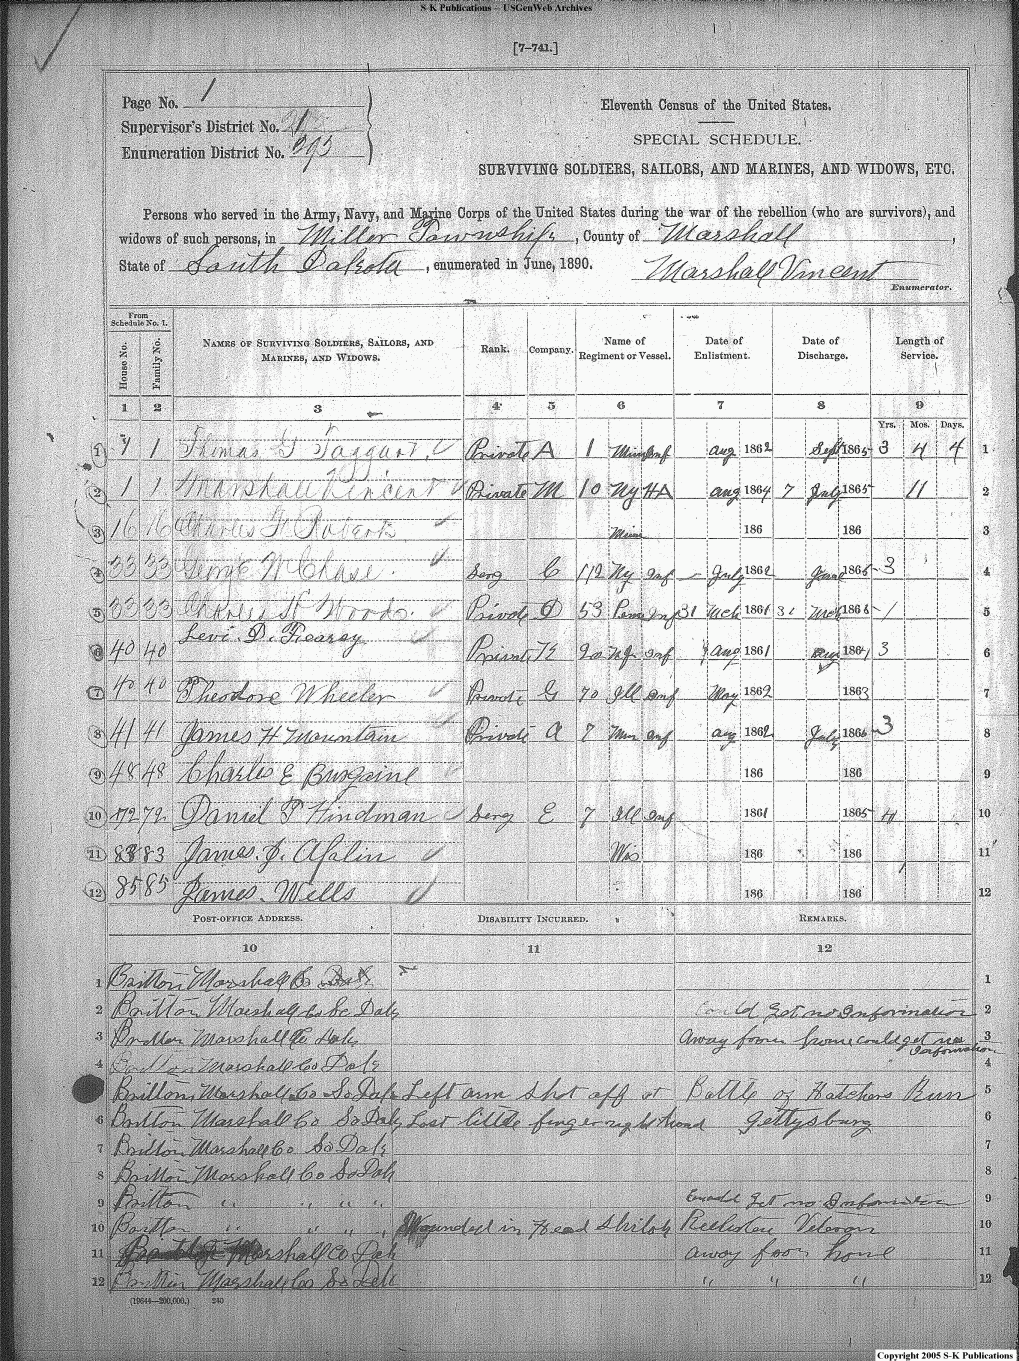 S-K Publications – USGenWeb Archives
[7–741.]
Page No. 1
Supervisor's District No.
Enumeration District No. 293
Eleventh Census of the United States.
SPECIAL SCHEDULE.
SURVIVING SOLDIERS, SAILORS, AND MARINES, AND WIDOWS, ETC.
Persons who served in the Army, Navy, and Marine Corps of the United States during the war of the rebellion (who are survivors), and
widows of such persons, in Miller Township, County of Marshall,
State of South Dakota, enumerated in June, 1890. Marshall Vincent
Enumerator.
From Schedule No. 1.
House No. Family No. NAMES OF SURVIVING SOLDIERS, SAILORS, AND MARINES, AND WIDOWS. Rank. Company. Name of Regiment or Vessel. Date of Enlistment. Date of Discharge. Length of Service.
1 2 3 4 5 6 7 8 9
Yrs. Mos. Days.
1 1 Thomas G Taggart Private A 1 Minn Inf Aug 1862 Sept 1865 3 4 4 1
2 1 1 Marshall Vincent Private M 10 Ny HA Aug 1864 7 July 1865 11 2
3 16 16 Charles F 186 186 3
4 33 33 George W Chase Serg C 112 Ny Inf July 1862 June 1865 3 4
5 33 33 Charles H Woods Private D 53 Penn Inf 31 Mch 1861 31 Mch 186 1 5
6 40 40 Levi D. Private Inf Aug 1861 Aug 1864 3 6
7 40 40 Theodore Wheeler Private G 70 Ill Inf May 1862 1863 7
8 41 41 James H Mountain Private A 7 Inf Aug 1862 July 186 3 8
9 48 48 Charles E Burgoine 186 186 9
10 72 72 Daniel P Hindman Serg E 7 Ill Inf 1861 1865 4 10
11 83 83 James J. Wis 186 186 11
12 85 85 James Wells 186 186 12
POST-OFFICE ADDRESS. DISABILITY INCURRED. REMARKS.
10 11 12
1 Britton Marshall Co Dak 1
2 Britton Marshall Co So Dak Could Get no Information 2
3 Britton Marshall Co Dak Away from home could get no Information 3
4 Britton Marshall Co Dak 4
5 Britton Marshall Co So Dak Left arm shot off at Battle of Hatchers Run 5
6 Britton Marshall Co So Dak Lost little finger right Hand Gettysburg 6
7 Britton Marshall Co So Dak 7
8 Britton Marshall Co So Dak 8
9 Britton " " " " Could Get no Information 9
10 Britton " " " " Wounded in Head Shiloh Veteran 10
11 Marshall Co Dak away from home 11
12 Britton Marshall Co So Dak " " " 12
(19644—200,000.) 240
Copyright 2005 S-K Publications